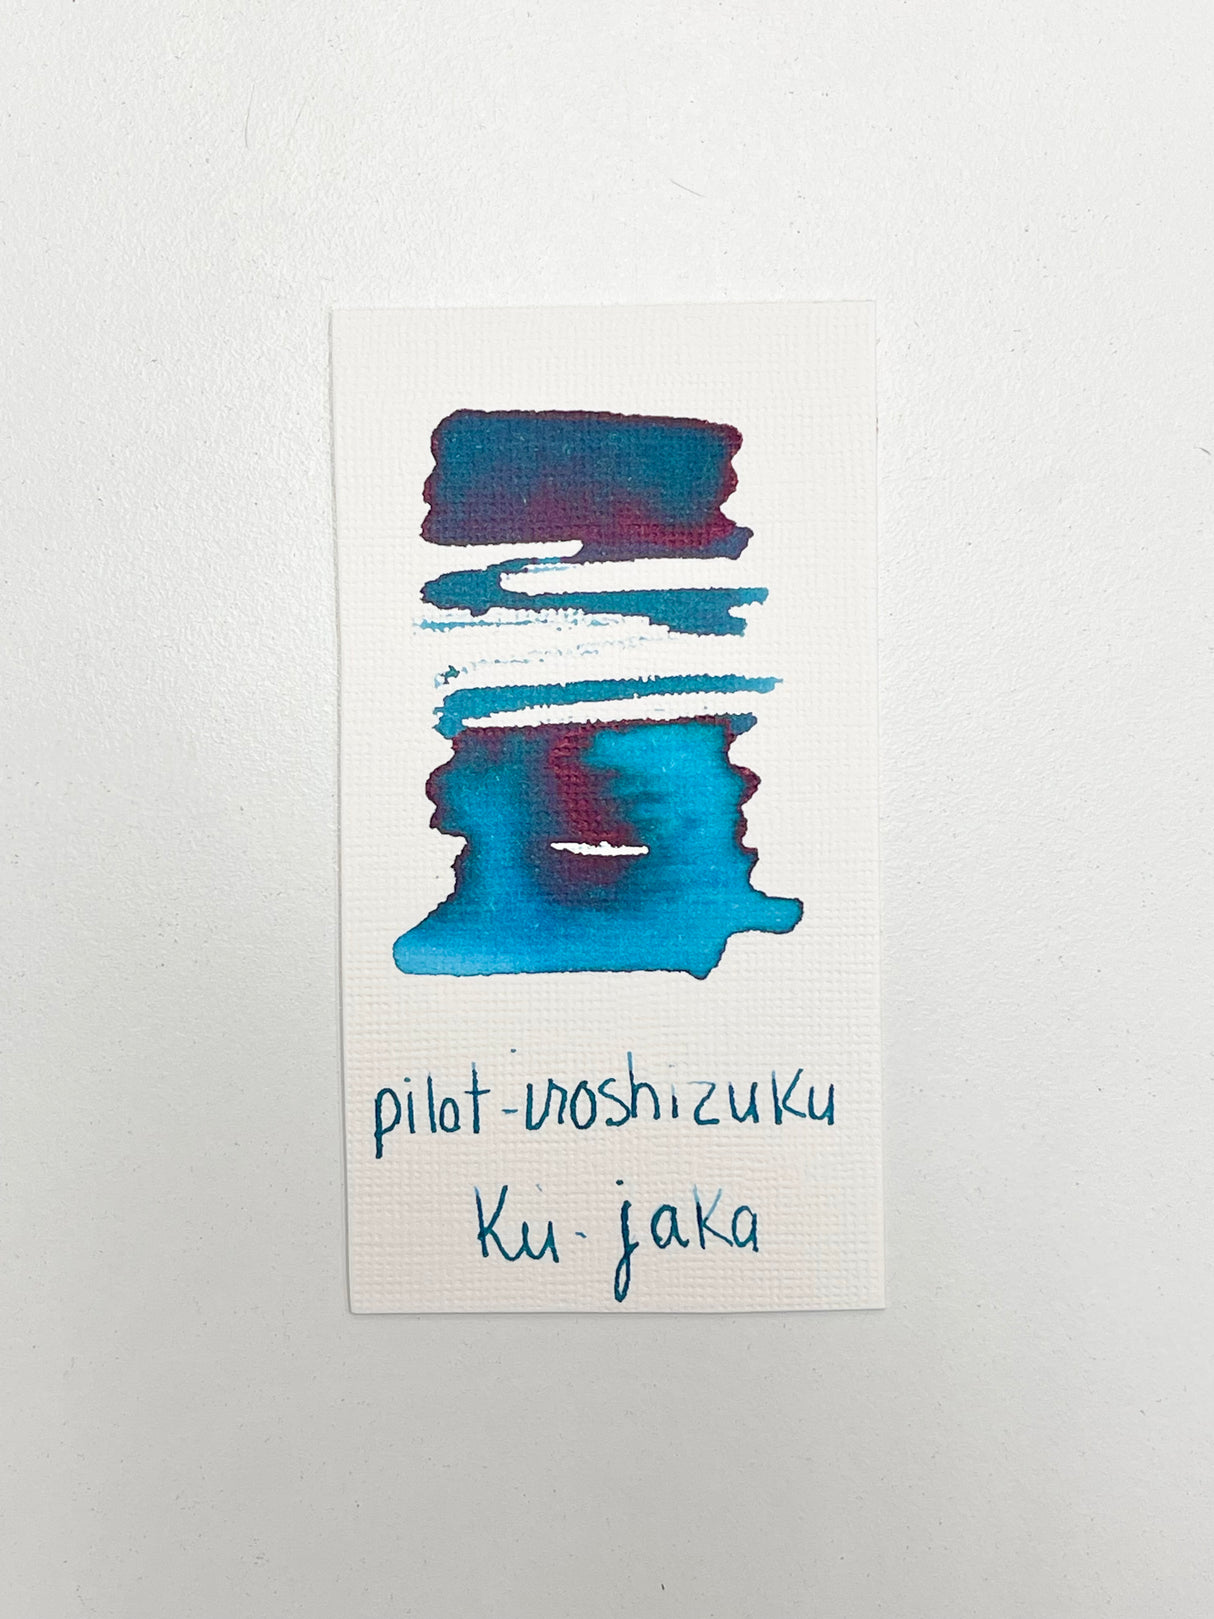 pilot-iroshizuku
Ku-jaka